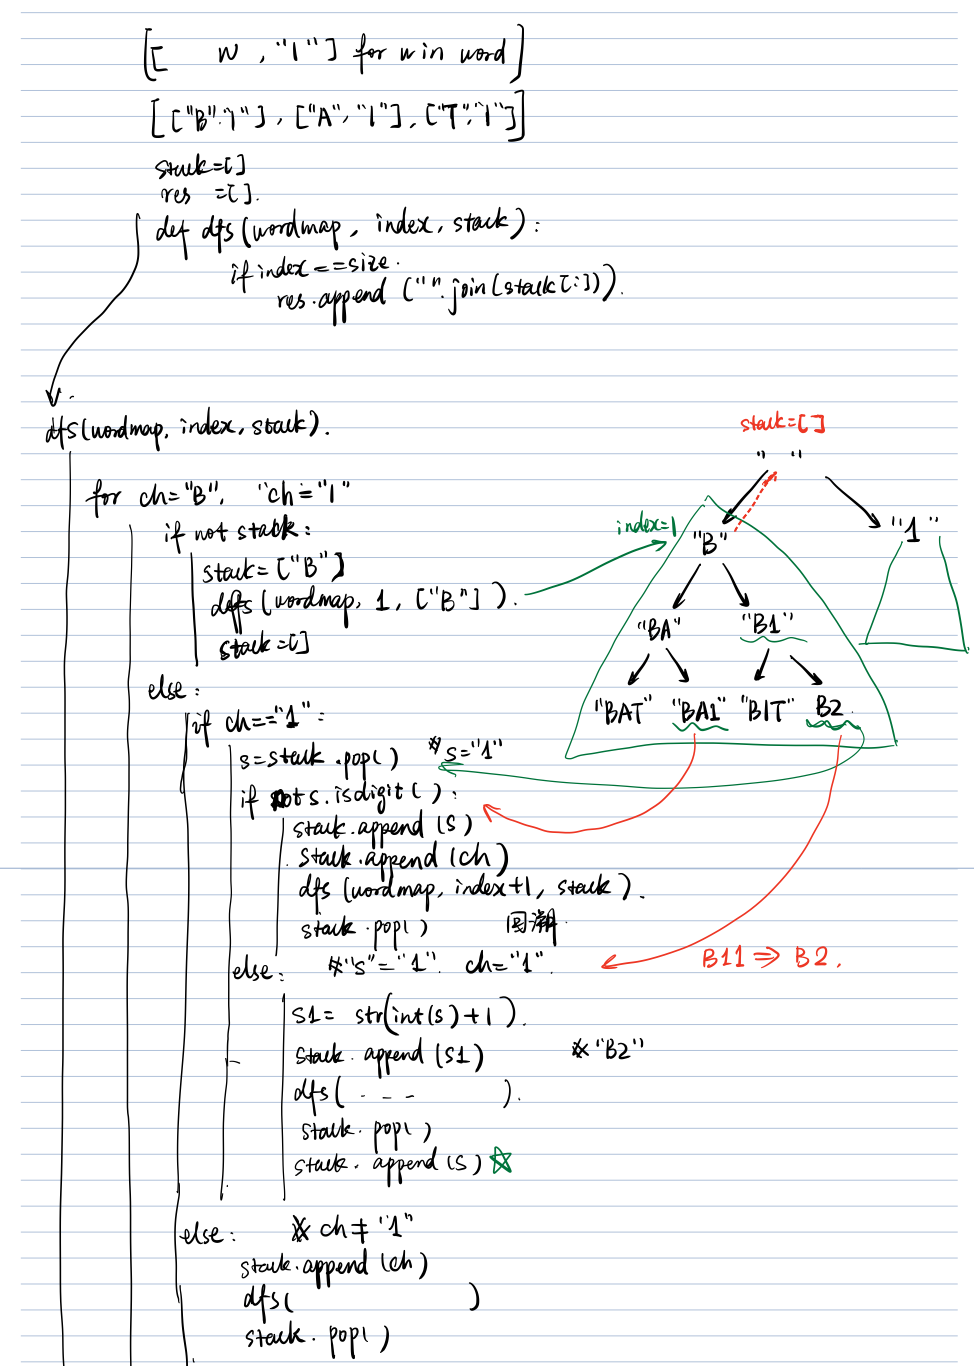 [[ w , "1"] for w in word]
[["B","1"], ["A","1"], ["T","1"]]
stack=[]
res =[].
def dfs(wordmap, index, stack):
if index==size.
res.append ("".join(stack[:])).
dfs(wordmap, index, stack).
stack=[]
" "
for ch="B", "ch="1"
if not stack:
index=1
"B"
"1"
stack=["B"]
dffs(wordmap, 1, ["B"]).
stack=[]
"BA" "B1"
else:
if ch=="1":
"BAT" "BA1" "B1T" B2
s=stack.pop() # s="1"
if not s.isdigit():
stack.append(s)
stack.append(ch)
dfs(wordmap, index+1, stack).
stack.pop() 回溯.
else: #"s"="1". ch="1".
B11 ⇒ B2.
S1= str(int(s)+1).
stack.append(S1) # "B2"
dfs( . - - ).
stack.pop()
stack.append(s) ☆
else: # ch≠"1"
stack.append(ch)
dfs( )
stack.pop()